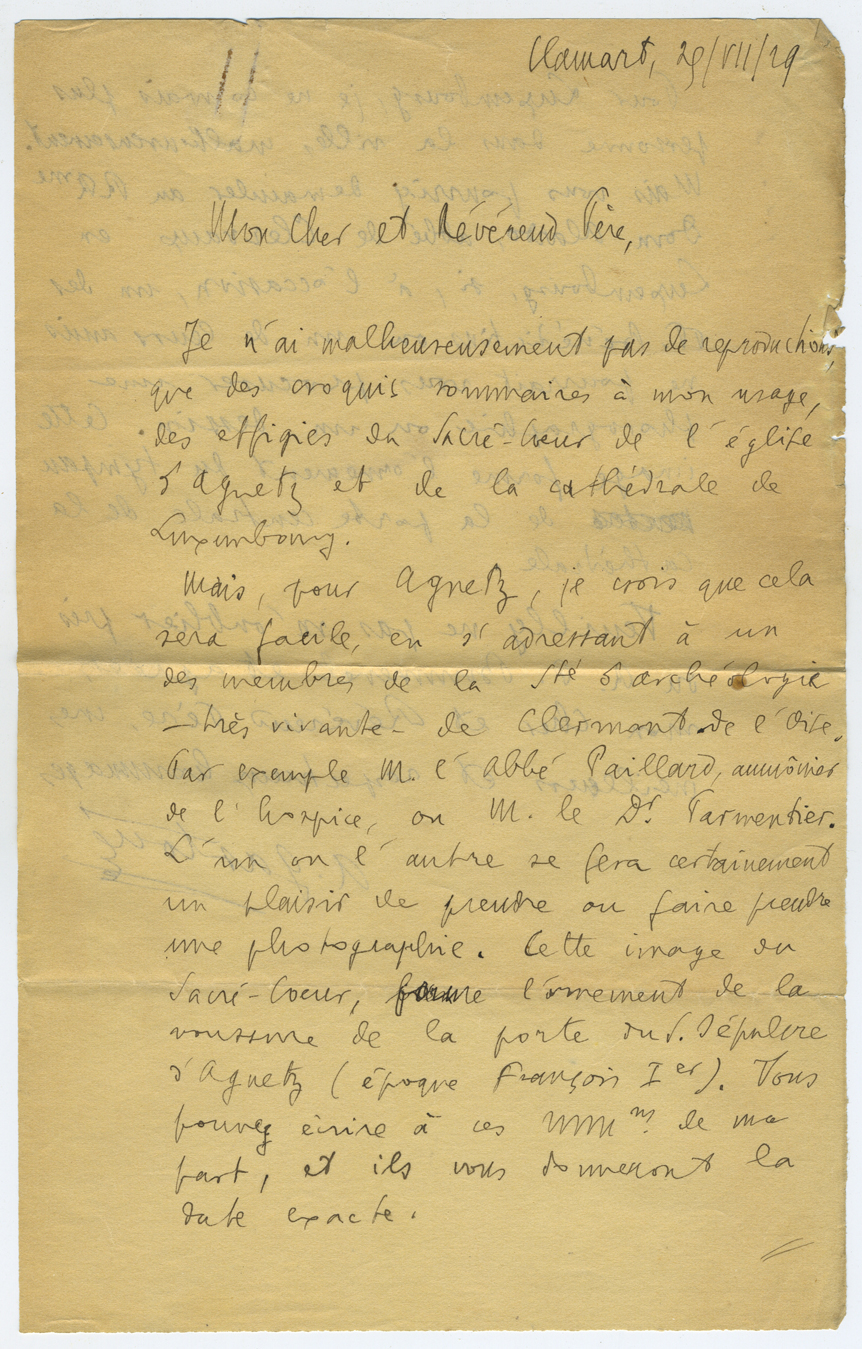 Clamart, 29/VII/29
Mon Cher et Révérend Père,
Je n'ai malheureusement pas de reproductions,
que des croquis sommaires à mon usage,
des effigies du Sacré-Coeur de l'église
d'Agnetz et de la cathédrale de
Luxembourg.
Mais, pour Agnetz, je crois que cela
sera facile, en s'adressant à un
des membres de la Sté d'archéologie
– très vivante – de Clermont de l'Oise.
Par exemple M. l'Abbé Paillard, aumônier
de l'hospice, ou M. le Dr Parmentier.
L'un ou l'autre se fera certainement
un plaisir de prendre ou faire prendre
une photographie. Cette image du
Sacré-Coeur, forme l'ornement de la
voussure de la porte du S. Sépulcre
d'Agnetz (époque François Ier). Vous
pouvez écrire à ces MMrs de ma
part, et ils vous donneront la
date exacte.